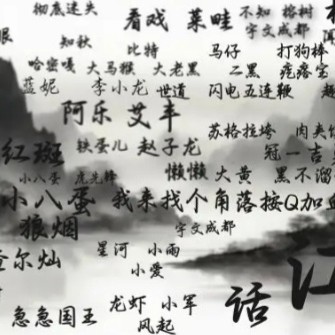 彻底迷失
看戏 菜畦 不知 榕树
宇文成都
知秋 比特 马仔 打狗棒
哈密嘎 大马猴 大老黑 二黑 疙落宝
蓝妮 李小龙 世道 闪电五连鞭
阿乐 艾丰
苏格拉垮 肉夹
红斑 铁蛋儿 赵子龙 冠一吉
小八蛋 虎先锋 懒懒 大黄 黑不溜
小八蛋 我来找个角落按Q加血
狼烟 宇文成都
查尔灿 星河 小雨
小爱
江
话
龙虾 小军
急急国王 风起